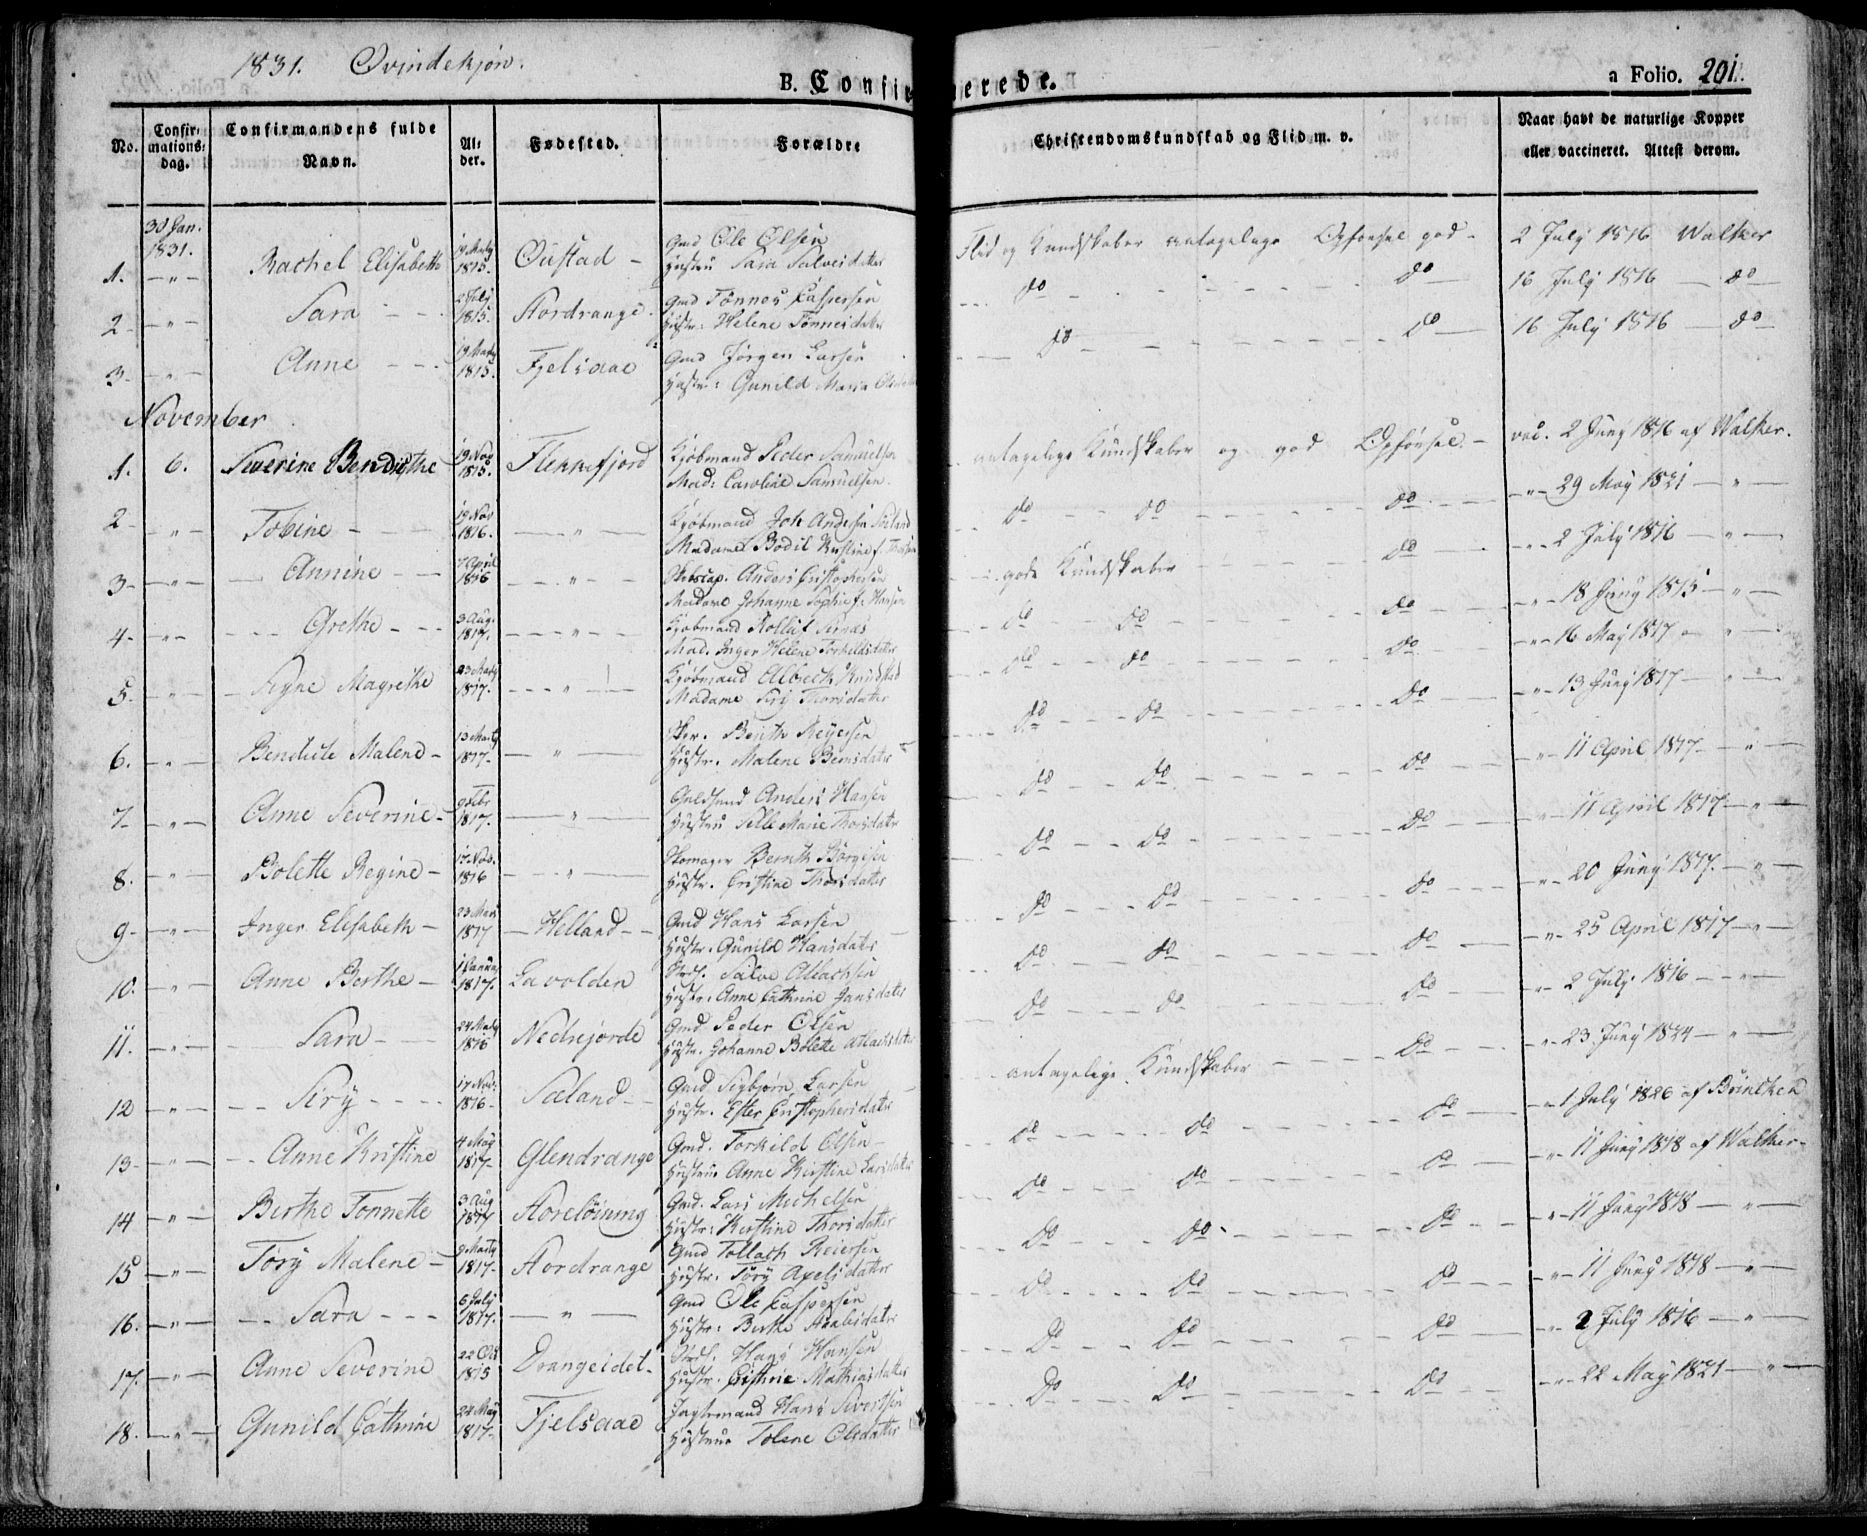 1831. Qvindekjøn.
B. Confirmerede.
a Folio. 201.
No.
Confir-
mations-
dag.
Confirmandens fulde
Navn.
Al-
der.
Fødested.
Forældre
Christendomskundskab og Flid m. v.
Naar havt de naturlige Kopper
eller vaccineret. Attest derom.
30 Jan.
1831.
1. Rachel Elisabeth 19 Marty 1815. Øustad Gmd Ole Olsen Flid og Kundskaber antagelige Opførsel god 2 July 1816 Walker
Hustru Sara Salvesdatter
2 Sara 2 July 1815. Hordrange Gmd Tønnes Caspersen do do 16 July 1816 do
Hustr: Helene Tønnesdatter
3 Anne 19 Marty 1815. Fjelsaae Gmd Jørgen Larsen do do 16 July 1816 do
Hustr: Gunild Maria
November
1. 6. Severine Bendicthe 19 Nov 1815. Flekkefjord Kjøbmand Peder Samuelsen antagelige Kundskaber og god Opførsel. vac. 2 Juny 1816 af Walker.
Mad: Caroline Samuelsen.
2 Tobine 19 Nov 1816. " Kjøbmand Joh Andersen Sæland do do do " 29 May 1821 "
Madame Bodil Kirstine f.
3 Annine 7 April 1816 " Skibscap. Anders Cristophersen gode Kundskaber do " 2 July 1816 "
Madame Johanne Sophie f: Hansen
4 Grethe 3 Aug. 1817. " Kjøbmand do do do " 18 Juny 1815 "
Mad. Inger Helene Torkeldsdatter
5. Signe Magrethe 23 Marty 1817. " Kjøbmand do do do " 16 May 1817 "
Madame Siry Thorsdatter
6. Bendicte Malene 13 Marty 1817 " Bernth Reyersen do do do " 13 Juny 1817 "
Hustr. Malene
7 Anne Severine 9 Febr 1817. " Guldsmed Anders Hansen do do do " 11 April 1817 "
Hustru Marie Thorsdatter
8. Bolette Regine 17 Nov. 1816 " Skomager Bernth Børgesen do do do " 11 April 1817 "
Hustr. Cristine Thorsdatter
9 Inger Elisabeth 23 Mars 1817 Helland Gmd Hans Larsen do do do " 20 Juny 1817. "
Hustr. Gunild Hansdatter
10. Anne Berthe 1817. Lavolden Salve do do do " 25 April 1817 "
Hustr: Anne Cathrine Jansdatter
11. Sara 24 Marty 1816 Nedrejorde Gmd Peder Olsen do do do " 2 July. 1816 "
Hustr. Johanne Bolette
12 Siry 17 Nov: 1816 Sæland Gmd Sigbjørn Larsen antagelige Kundskaber do " 23 Juny 1824 "
Hustr. Ester Cristophersdatter
13 Anne Kristine 4 May 1817 Glendrange Gmd. Torkild Olsen do do do " 1 July 1826 af
Hustrue Anne Kirstine Larsdatter
14 Berthe Tonnette 3 Aug 1817 Gmd. Lars Michelsen do do do " 11 Juny 1818 af Walker
Hustr: Kirstine Thorsdatter
15 Tory Malene 9 Marty 1817 Hordrange Gmd Tollach Reiersen do do do " 11 Juny 1818 "
Hustr. Tory Axelsdatter
16. Sara 6 July 1817. " Gmd Ole Caspersen do do do " 11 Juny 1818 "
Hustr: Berthe
17. Anne Severine 22 Oct 1815 Drangeidet Hans Hansen do do do " 2 July 1816 "
Hustr. Mathiasdatter
18. Gunild Cathrine 24 May 1817 Fjelsaae Hans Sivertsen do do do " 22 May 1821 "
Hustrue Tolene Olsdatter